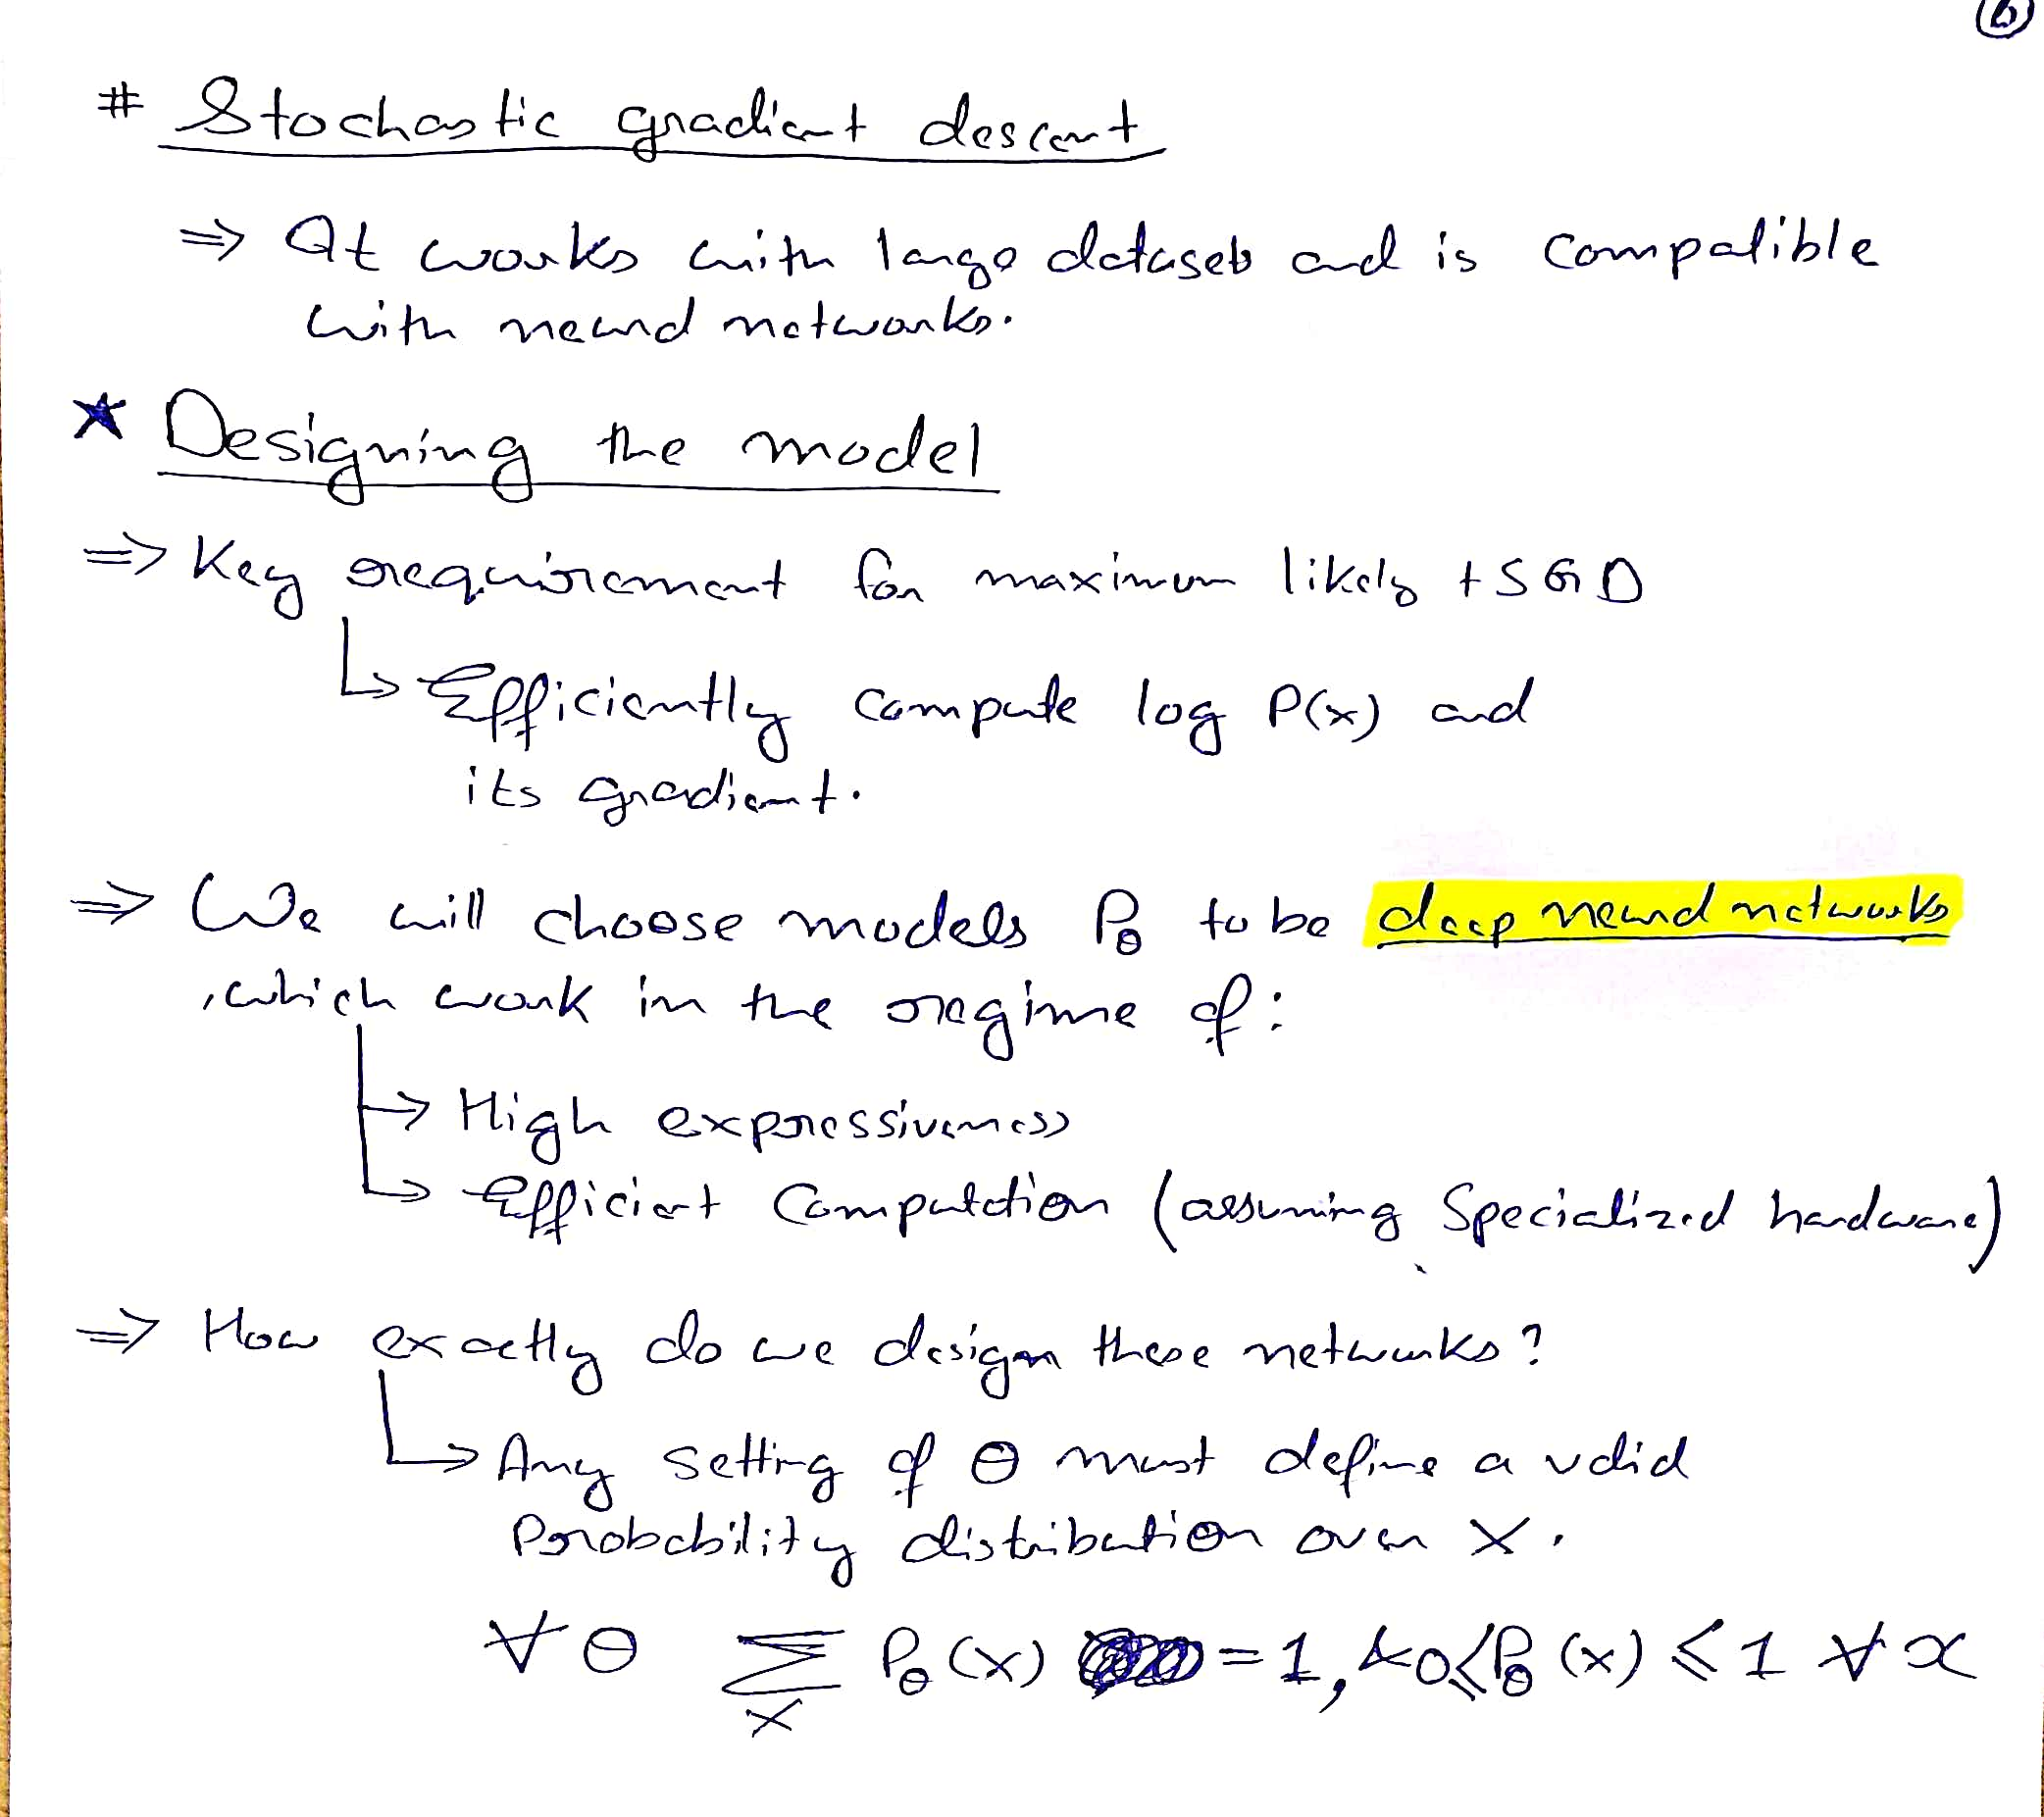 (6)
# Stochastic gradient descent
⇒ It works with large datasets and is compatible
with neural networks.
★ Designing the model
⇒ Key requirement for maximum likely + SGD
↳ Efficiently compute log P(x) and
its gradient.
⇒ We will choose models Pθ to be deep neural networks
, which work in the regime of:
↳ High expressiveness
↳ Efficient Computation (assuming Specialized hardware)
⇒ How exactly do we design these networks?
↳ Any setting of θ must define a valid
Probability distribution over x.
∀ θ ∑x Pθ(x) = 1, & 0 ≤ Pθ(x) ≤ 1 ∀ x